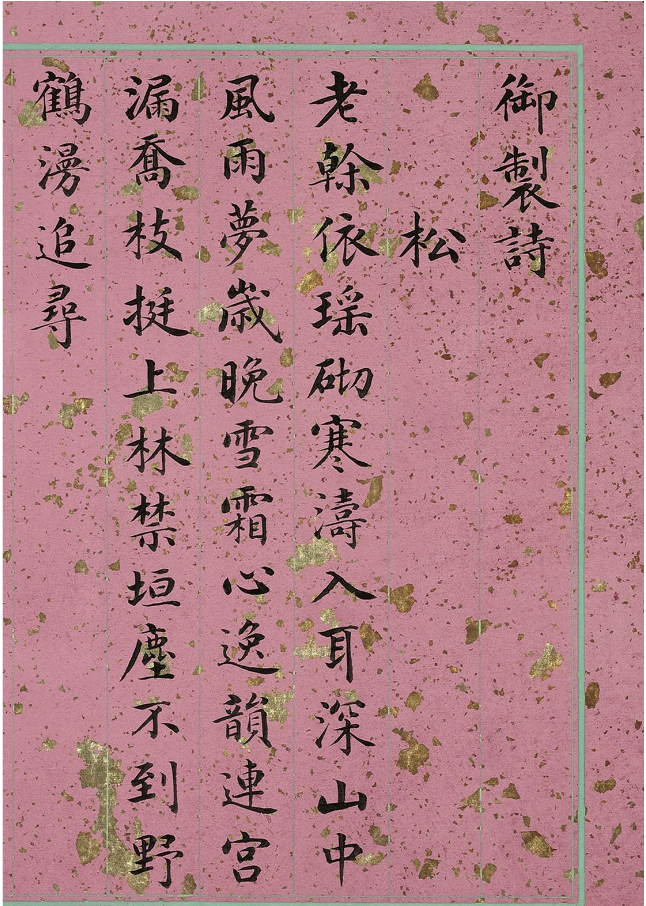 御製詩
松
老榦依瑶砌寒濤入耳深山中
風雨夢歲晚雪霜心逸韻連宫
漏喬枝挺上林禁垣塵不到野
鶴漫追尋